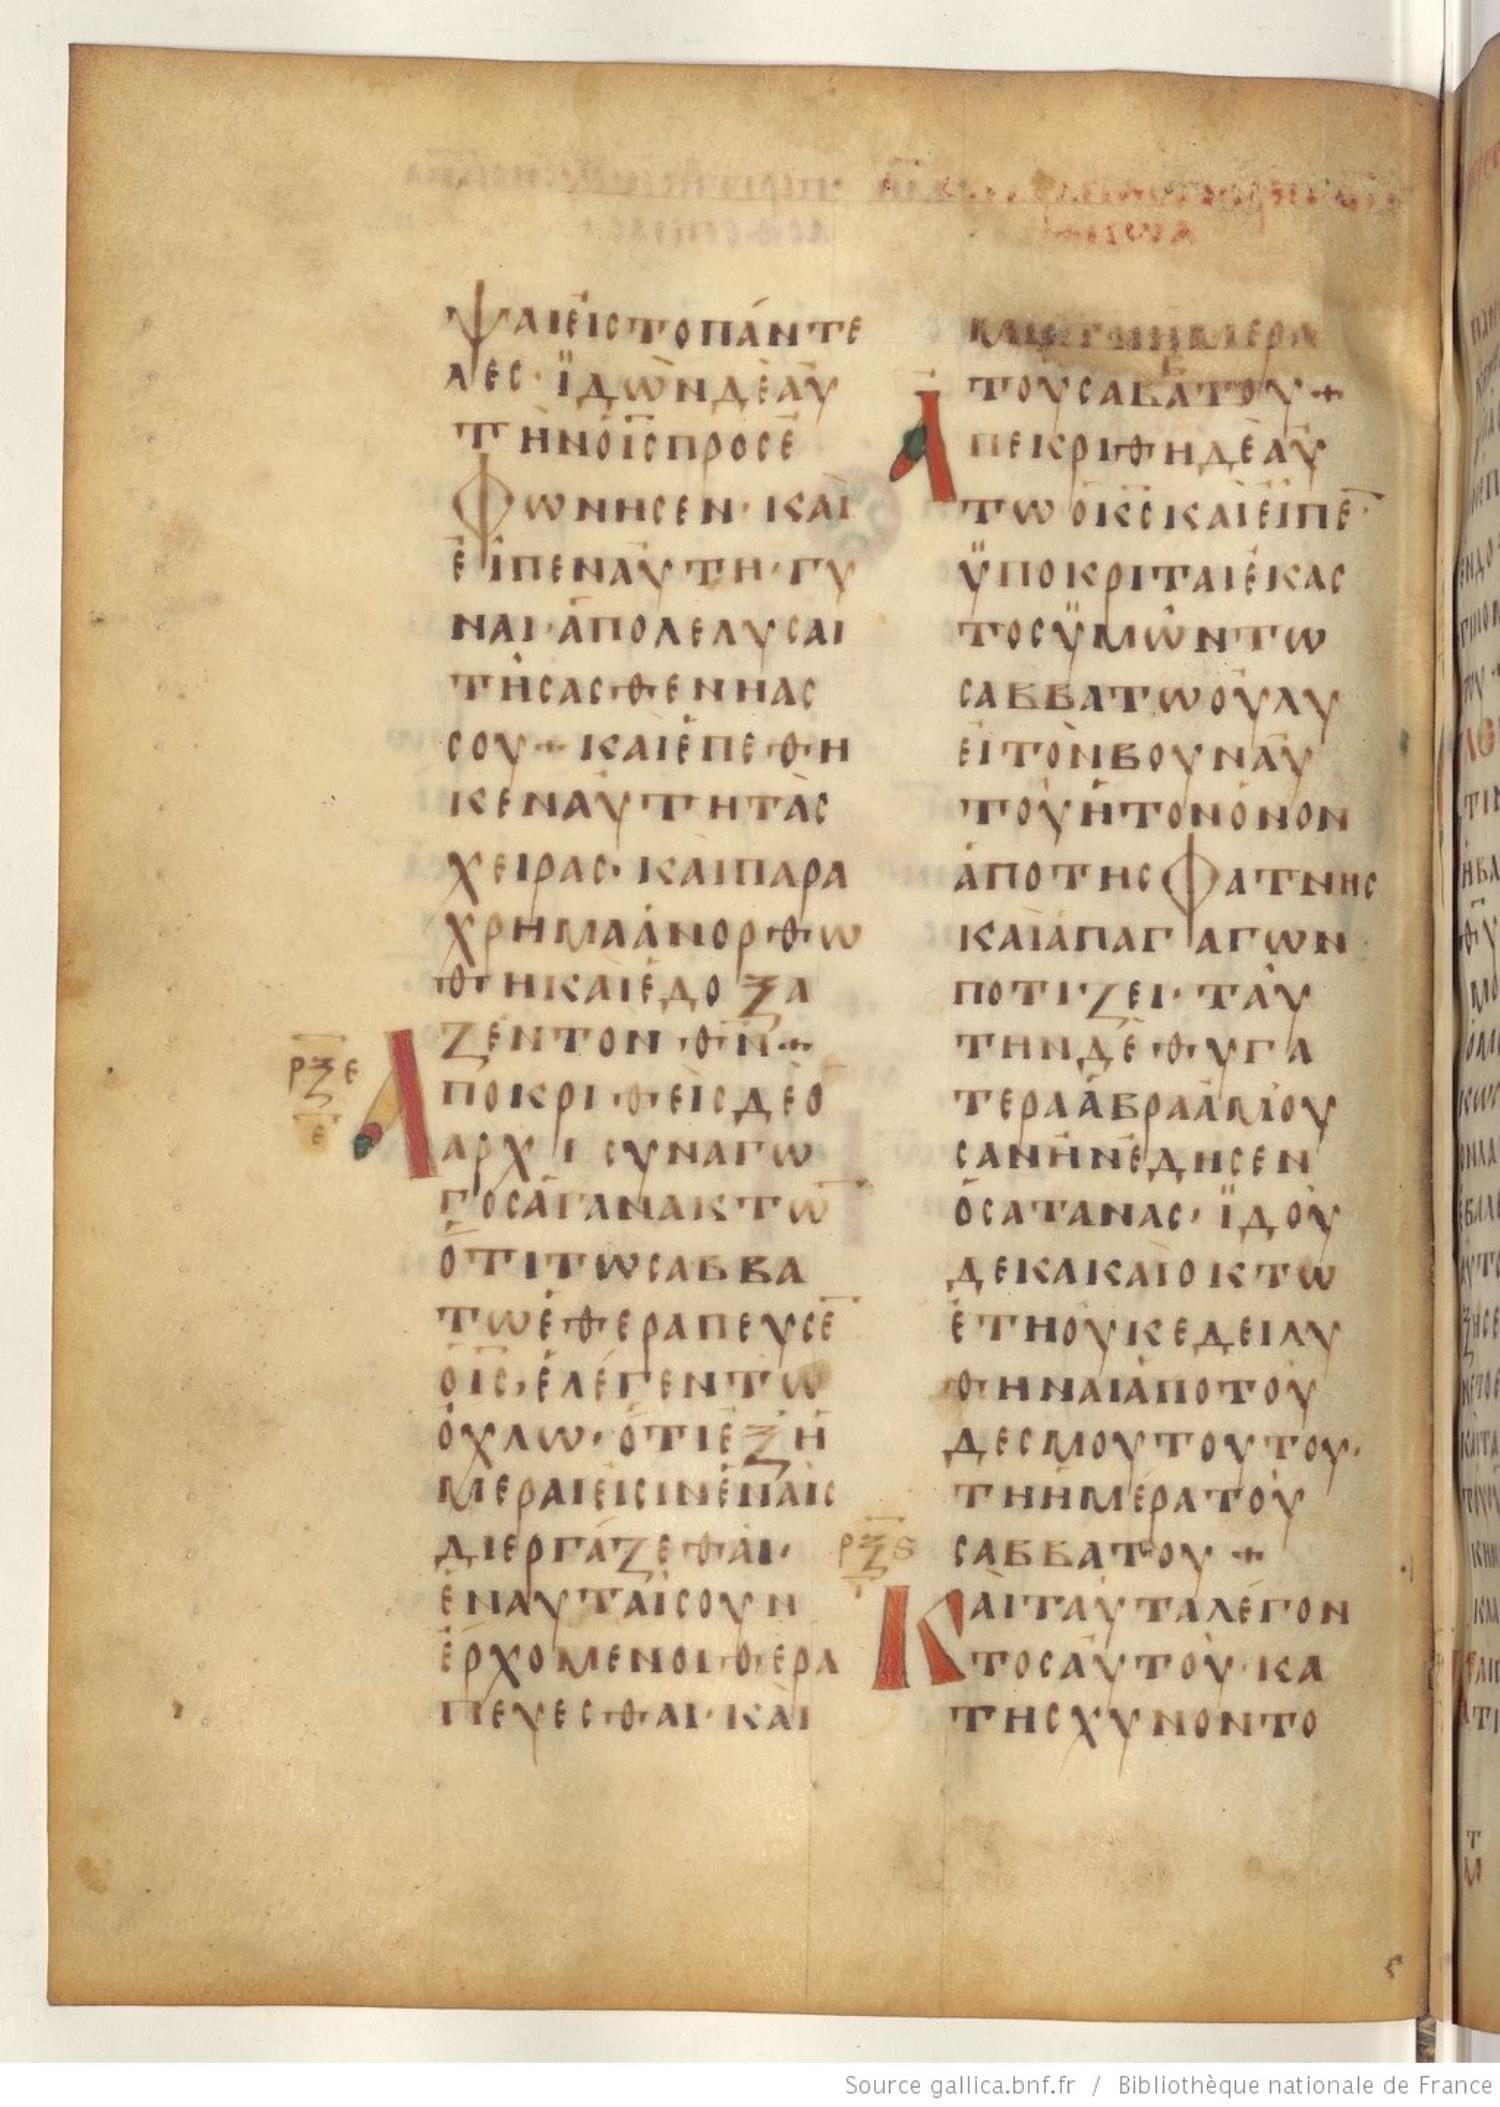 ψαι εἰς τὸ παντε
λές· ἰδὼν δὲ αὐ
τὴν ὁ ῑς̄ προσε̄
φώνησεν· καὶ
εἶπεν αὐτῆ· γύ
ναι· ἀπολέλυσαι
τῆς ἀσθεννας
σου + καὶ ἐπέθη
κεν αὐτῆ τὰς
χεῖρας· καὶ παρα
χρῆμα ἀνορθώ
θη καὶ ἐδόξα
ζεν τὸν θ̄ν̄ +
ρξε
ε
Ἀποκριθεὶς δὲ ὁ
ἀρχισυνάγω
γος ἀγανακτῶ̄
ὅτι τῶ σαββά
τω ἐθεράπευσε̄
ὁ ῑς̄, ἔλεγεν τῶ
ὄχλω· ὅτι ἓξ ἡ
μέραι εἰσὶν ἐν αἷς
δι ἐργάζεθαι·
ἐν αὐταῖς οὖν
ἐρχόμενοι θερα
πεύεσθαι· καὶ
τοῦ σαβάτου +
Ἀπεκρίθη δὲ αὐ
τῶ ὁ κ̄ς̄ καὶ εἶπε̄·
ὑποκριταὶ ἕκασ
τος ὑμῶν τῶ
σαββάτω οὐ λύ
ει τὸν βοῦν αὐ
τοῦ ἢ τὸν ὄνον
ἀπὸ τῆς φάτνης
καὶ ἀπαγαγὼν
ποτίζει· ταύ
την δὲ θυγα
τέρα ἀβραὰμ οὖ
σαν ἣν ἔδησεν
ὁ σατανᾶς· ἰδοὺ
δέκα καὶ ὀκτὼ
ἔτη οὐκ ἔδει λυ
θῆναι ἀπὸ τοῦ
δεσμοῦ τούτου·
τῆ ἡμέρα τοῦ
σαββάτου +
ρξς
Καὶ ταῦτα λέγον
τος αὐτοῦ· κα
τησχύνοντο
Source gallica.bnf.fr / Bibliothèque nationale de France